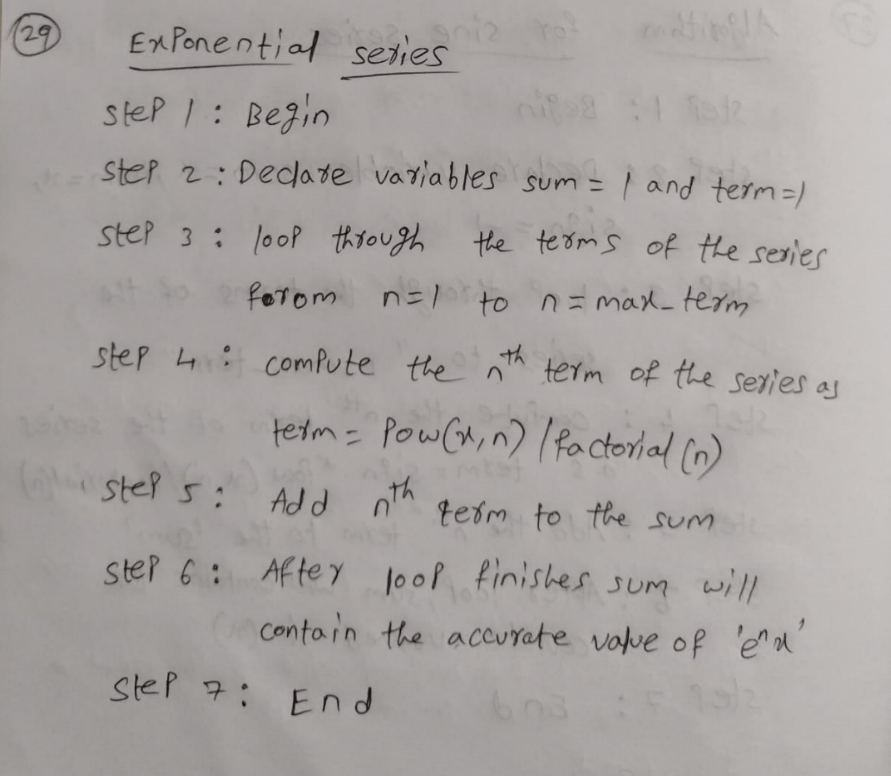 29
Exponential series
Step 1 : Begin
Step 2 : Declare variables sum = 1 and term=1
Step 3 : loop through the terms of the series
forom n=1 to n = max_term
Step 4 : compute the nth term of the series as
term = Pow(x,n) / factorial (n)
Step 5 : Add nth term to the sum
Step 6 : After loop finishes sum will
contain the accurate value of 'e^x'
Step 7 : End